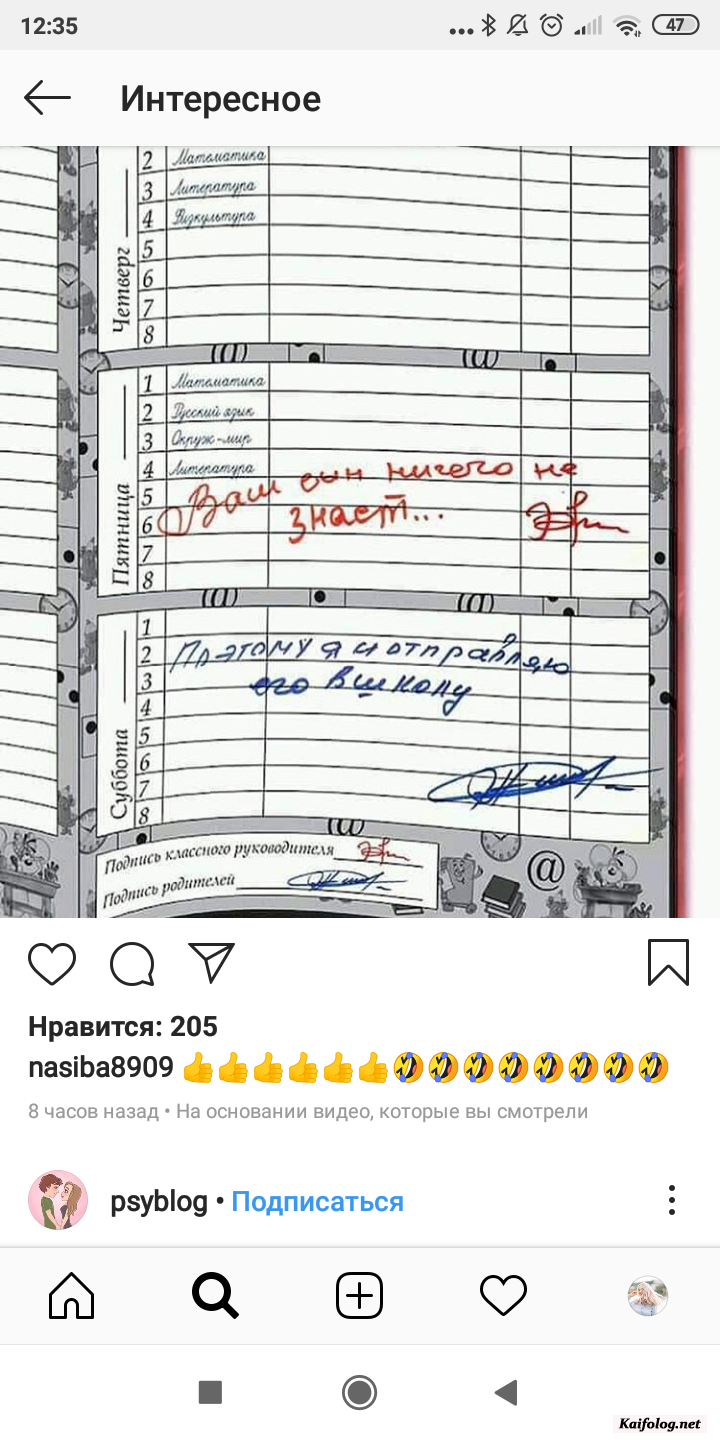 12:35
47
Интересное
Четверг
2 Математика
3 Литература
4 Физкультура
5
6
7
8
Пятница
1 Математика
2 Русский язык
3 Окруж-мир
4 Литература
5
6
7
8
Ваш сын ничего не
знает...
Суббота
1
2
3
4
5
6
7
8
Поэтому я и отправляю
его в школу
Подпись классного руководителя
Подпись родителей
@
Нравится: 205
nasiba8909 👍👍👍👍👍👍🤣🤣🤣🤣🤣🤣🤣🤣
8 часов назад • На основании видео, которые вы смотрели
psyblog • Подписаться
Kaifolog.net